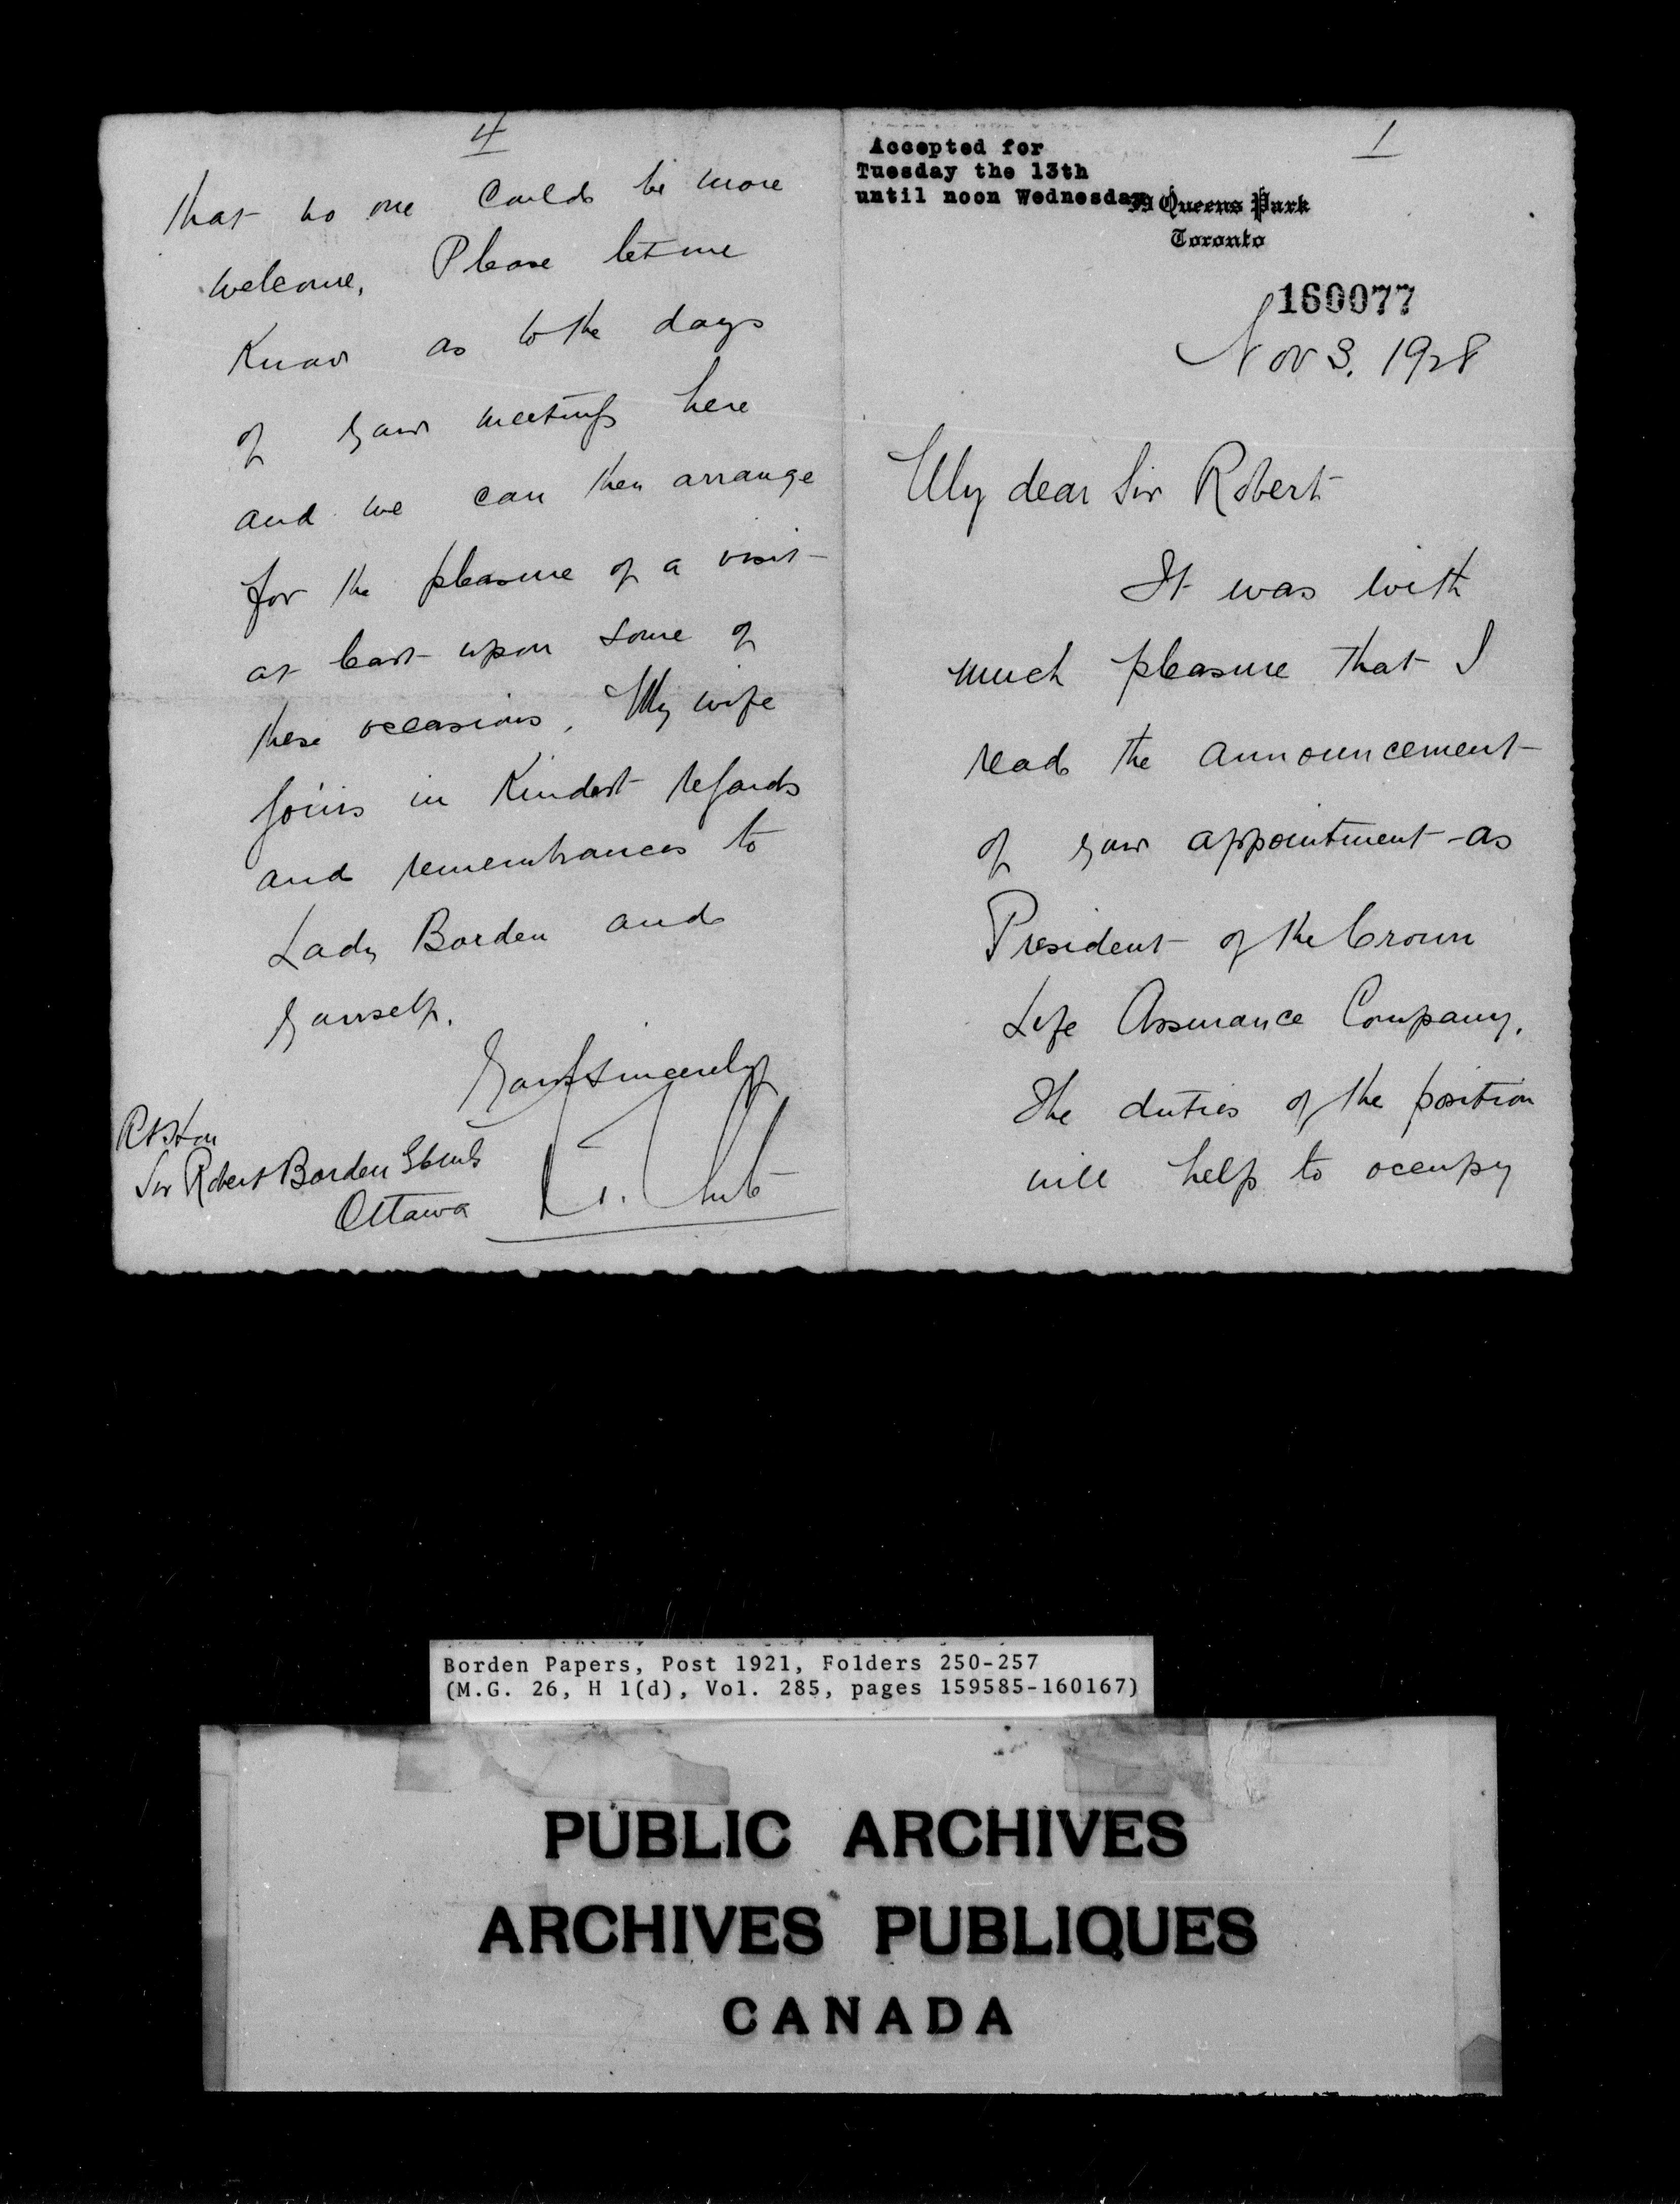 4
that no one could be more
welcome. Please let me
know as to the days
of your meetings here
and we can then arrange
for the pleasure of a visit
at least upon some of
these occasions. My wife
joins in kindest regards
and remembrances to
Lady Borden and
yourself.
Yours sincerely
Rt Hon
Sir Robert Borden
Ottawa
1
Accepted for
Tuesday the 13th
until noon Wednesday
Queens Park
Toronto
160077
Nov 3. 1928
My dear Sir Robert
It was with
much pleasure that I
read the announcement
of your appointment as
President of the Crown
Life Assurance Company.
The duties of the position
will help to occupy
Borden Papers, Post 1921, Folders 250-257
(M.G. 26, H 1(d), Vol. 285, pages 159585-160167)
PUBLIC ARCHIVES
ARCHIVES PUBLIQUES
CANADA